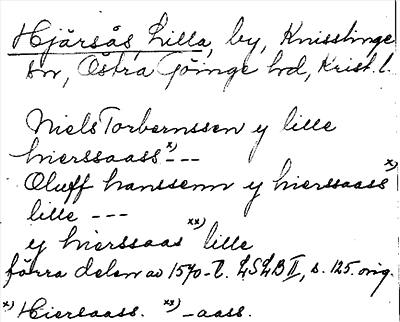 Hjärsås, Lilla, by, Knisslinge
sn, Östra Göinge hd, Krist. l.
Niels Torbernssen y lille
hierssaass x) ---
Oluff hanssenn y hierssaass x)
lille ---
y hierssaas xx) lille
förra delen av 1570-t. LSLB II, s. 125. orig.
x) Hiersaass. xx) -aass.